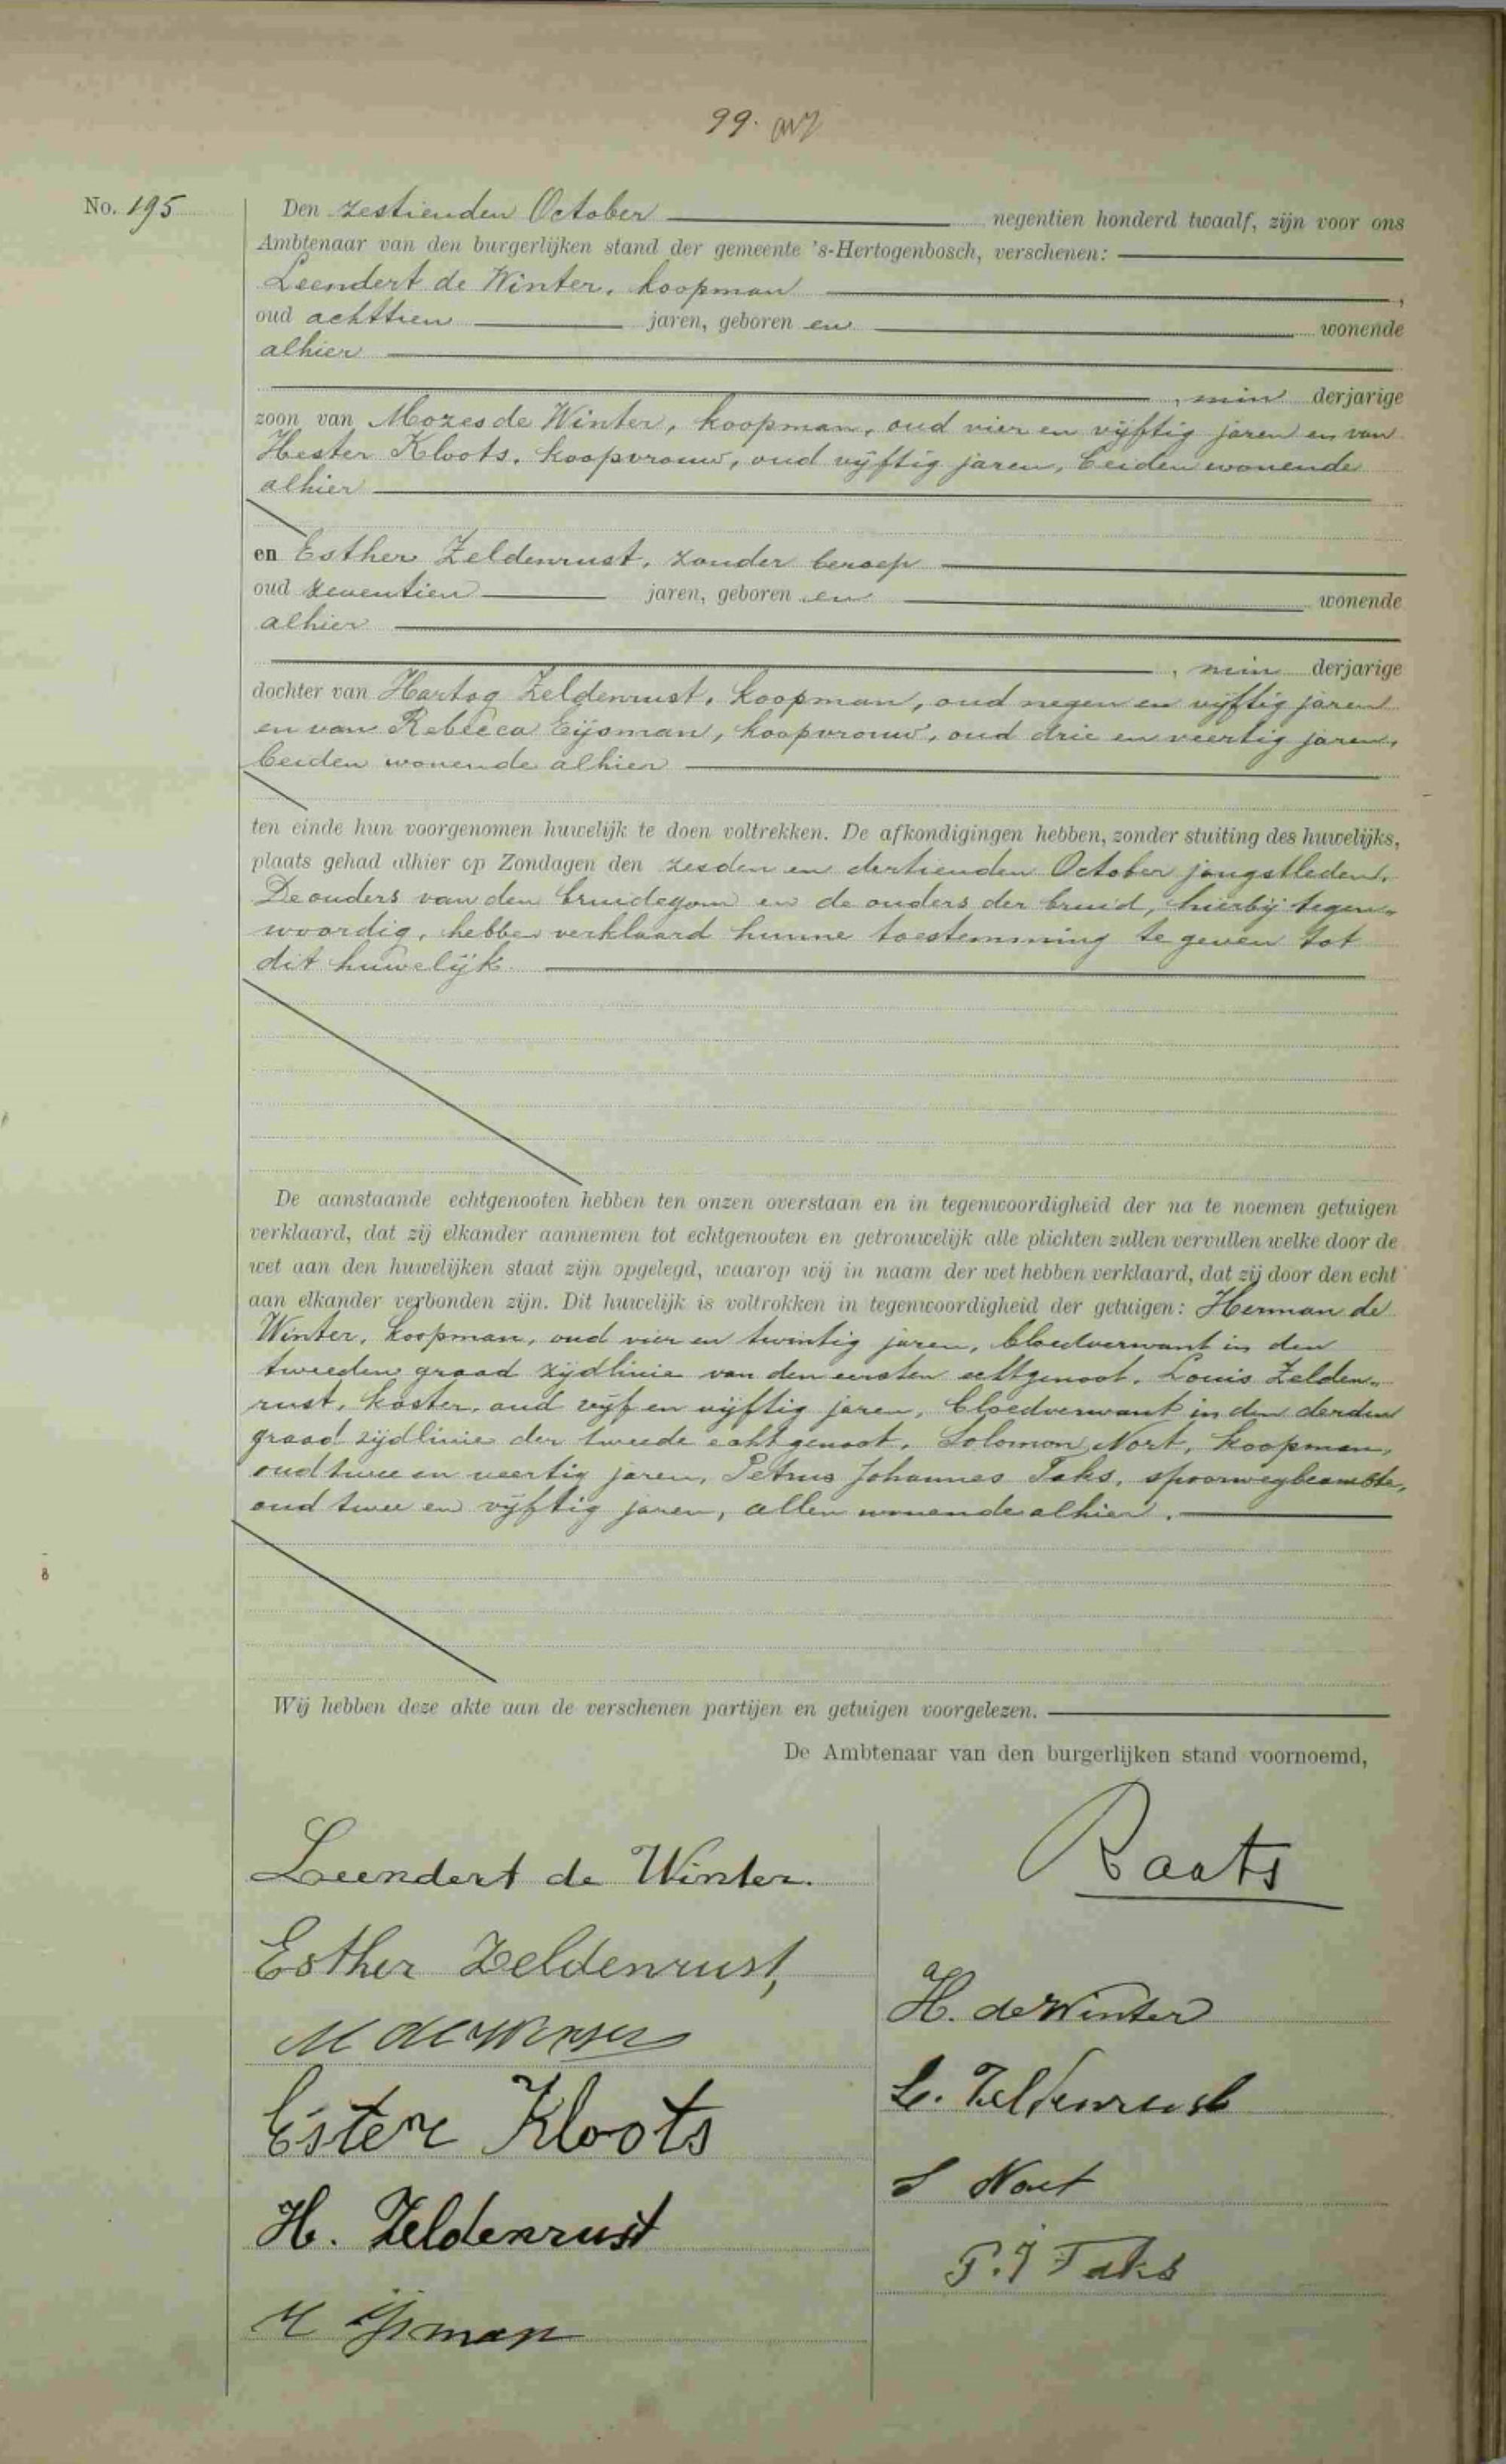 99.
No. 195
Den zestienden October negentien honderd twaalf, zijn voor ons
Ambtenaar van den burgerlijken stand der gemeente 's-Hertogenbosch, verschenen:
Leendert de Winter, koopman,
oud achttien jaren, geboren en wonende
alhier
, min derjarige
zoon van Mozes de Winter, koopman, oud vier en vijftig jaren en van
Hester Kloots, koopvrouw, oud vijftig jaren, beiden wonende
alhier
en Esther Zeldenrust, zonder beroep
oud zeventien jaren, geboren en wonende
alhier
, min derjarige
dochter van Hartog Zeldenrust, koopman, oud negen en vijftig jaren
en van Rebecca Eijsman, koopvrouw, oud drie en veertig jaren,
beiden wonende alhier
ten einde hun voorgenomen huwelijk te doen voltrekken. De afkondigingen hebben, zonder stuiting des huwelijks,
plaats gehad alhier op Zondagen den zesden en dertienden October jongstleden.
De ouders van den bruidegom en de ouders der bruid, hierbij tegen-
woordig, hebben verklaard hunne toestemming te geven tot
dit huwelijk.
De aanstaande echtgenooten hebben ten onzen overstaan en in tegenwoordigheid der na te noemen getuigen
verklaard, dat zij elkander aannemen tot echtgenooten en getrouwelijk alle plichten zullen vervullen welke door de
wet aan den huwelijken staat zijn opgelegd, waarop wij in naam der wet hebben verklaard, dat zij door den echt
aan elkander verbonden zijn. Dit huwelijk is voltrokken in tegenwoordigheid der getuigen: Herman de
Winter, koopman, oud vier en twintig jaren, bloedverwant in den
tweeden graad zijdlinie van den eersten echtgenoot, Louis Zelden-
rust, koster, oud vijf en vijftig jaren, bloedverwant in den derden
graad zijdlinie der tweede echtgenoot, Solomon Nort, koopman,
oud twee en veertig jaren, Petrus Johannes Taks, spoorwegbeambte,
oud twee en vijftig jaren, allen wonende alhier.
Wij hebben deze akte aan de verschenen partijen en getuigen voorgelezen.
De Ambtenaar van den burgerlijken stand voornoemd,
Raats
Leendert de Winter.
Esther Zeldenrust,
M de Winter
Ester Kloots
H. Zeldenrust
R Ijsman
H. de Winter
L. Zeldenrust
S Nort
P. J Taks